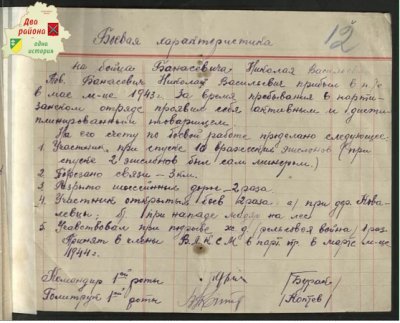 Два
района
одна
история
12
Боевая характеристика
на бойца Банасевича Николая Васильев
Тов. Банасевич Николай Васильевич прибыл в п/о
в мае м-це 1943г. За время пребывания в парти-
занском отряде проявил себя активным и дисци-
плинированным товарищем.
На его счету по боевой работе проделано следующее:
1 Участник при спуске 10 вражеских эшелонов (при
спуске 2 эшелонов был сам минером.)
2 Порезано связи – 3 км.
3 шоссейных дорог – 2 раза.
4 Участник открытых боев 12 раза: а) при дер. Кова-
левцы, б) при нападе на лес
5 Участвовал при ж.д. (рельсовая война) 1 раз
Принят в члены В.Л.К.С.М в парт. в марте м-це
1944г.
Командир 1ой роты /Бурак/
Политрук 1ой роты